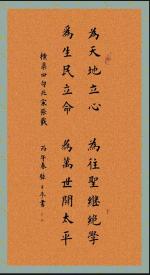 為天地立心 為往聖繼絕學
為生民立命 為萬世開太平
橫渠四句北宋張載
丙午春
書